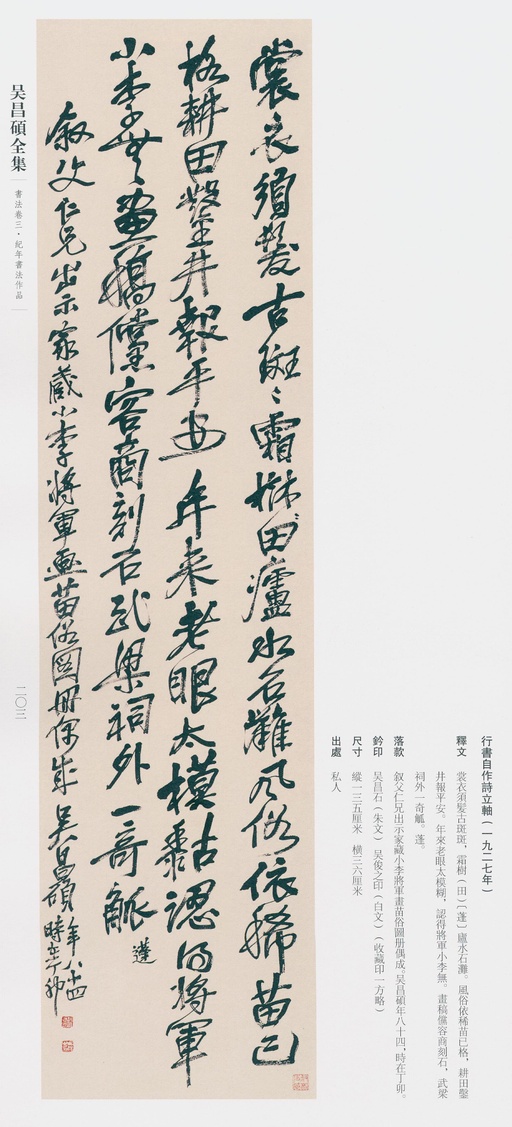 行書自作詩立軸(一九二七年)
釋文 裳衣須髪古斑斑,霜樹(田)〔蓬〕廬水石灘。風俗依稀苗已格,耕田鑿
井報平安。年來老眼太模糊,認得將軍小李無。畫稿儻容商刻石,武梁
祠外一奇觚。蓬。
落款 叙父仁兄出示家藏小李將軍畫苗俗圖册偶成,吴昌碩年八十四,時在丁卯。
鈐印 吴昌石(朱文) 吴俊之印(白文)(收藏印一方略)
尺寸 縱一三五厘米 横三六厘米
出處 私人
裳衣須髪古斑〻霜樹田廬水石灘風俗依稀苗已
格耕田鑿井報平安年來老眼太模黏認得將軍
小李無畫稿儻容商刻石武梁祠外一奇觚 蓬
叙父仁兄出示家藏小李將軍画苗俗圖册偶成 吴昌碩年八十四
時在丁卯
吴昌碩全集
書法卷三·紀年書法作品
二〇三